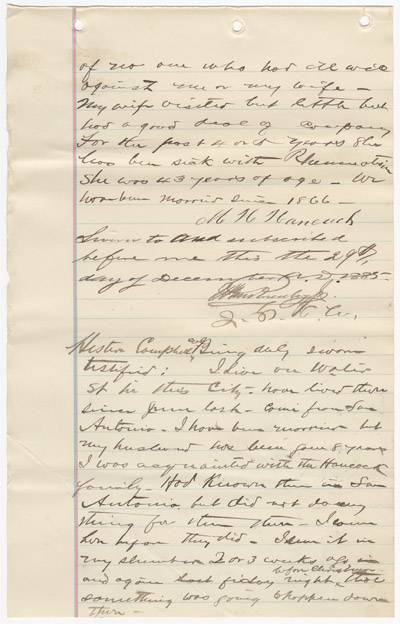 of no one who had ill will
against me or my wife -
My wife visited but little but
had a good deal of company
For the past 4 or 5 years She
has been sick with Rheumatism
She was 43 years of age - We
have been married since 1866 -
M H Hancock
Sworn to and subscribed
before me this the 29th,
day of December A.D. 1885-
J. P. T. Co.
Hester Campbell col'd, being duly sworn
testified: I live on Water
St in this City - have lived there
since June last - Come from San
Antonio - I have been married but
my husband has been gone 8 years
I was acquainted with the Hancock
family. Had Known them in San
Antonio but did not do any
thing for them then - I came
here before they did - I seen it in
my slumber 2 or 3 weeks ago in
before Christmas
and again last friday night, that
something was going to happen down
there -